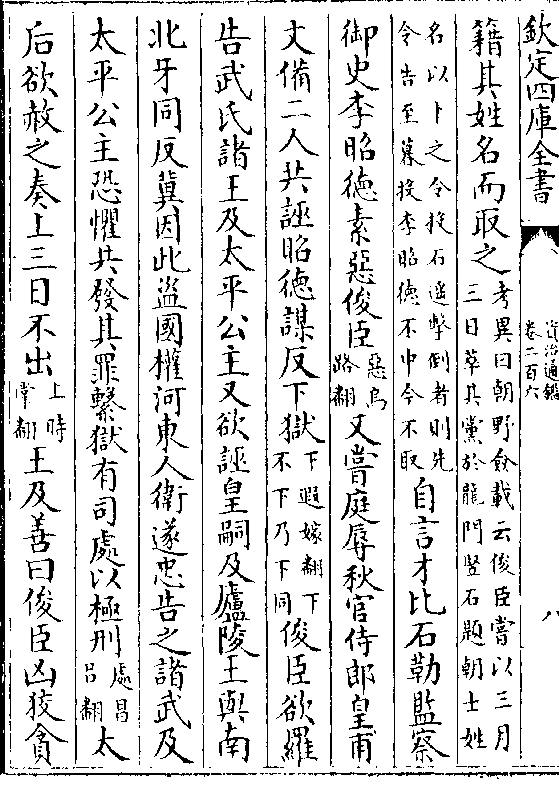 欽定四庫全書
資治通鑑
卷二百六
八
籍其姓名而取之考異曰朝野僉載云俊臣嘗以三月三日萃其黨於龍門豎石題朝士姓
名以卜之令投石遥擊倒者則先令告至暮投李昭德不中今不取自言才比石勒監察
御史李昭德素惡俊臣惡烏路翻又嘗庭辱秋官侍郎皇甫
文備二人共誣昭德謀反下獄下遐嫁翻下不下乃下同俊臣欲羅
告武氏諸王及太平公主又欲誣皇嗣及廬陵王與南
北牙同反冀因此盜國權河東人衛遂忠告之諸武及
太平公主恐懼共發其罪繫獄有司處以極刑處昌呂翻太
后欲赦之奏上三日不出上時掌翻王及善曰俊臣凶狡貪